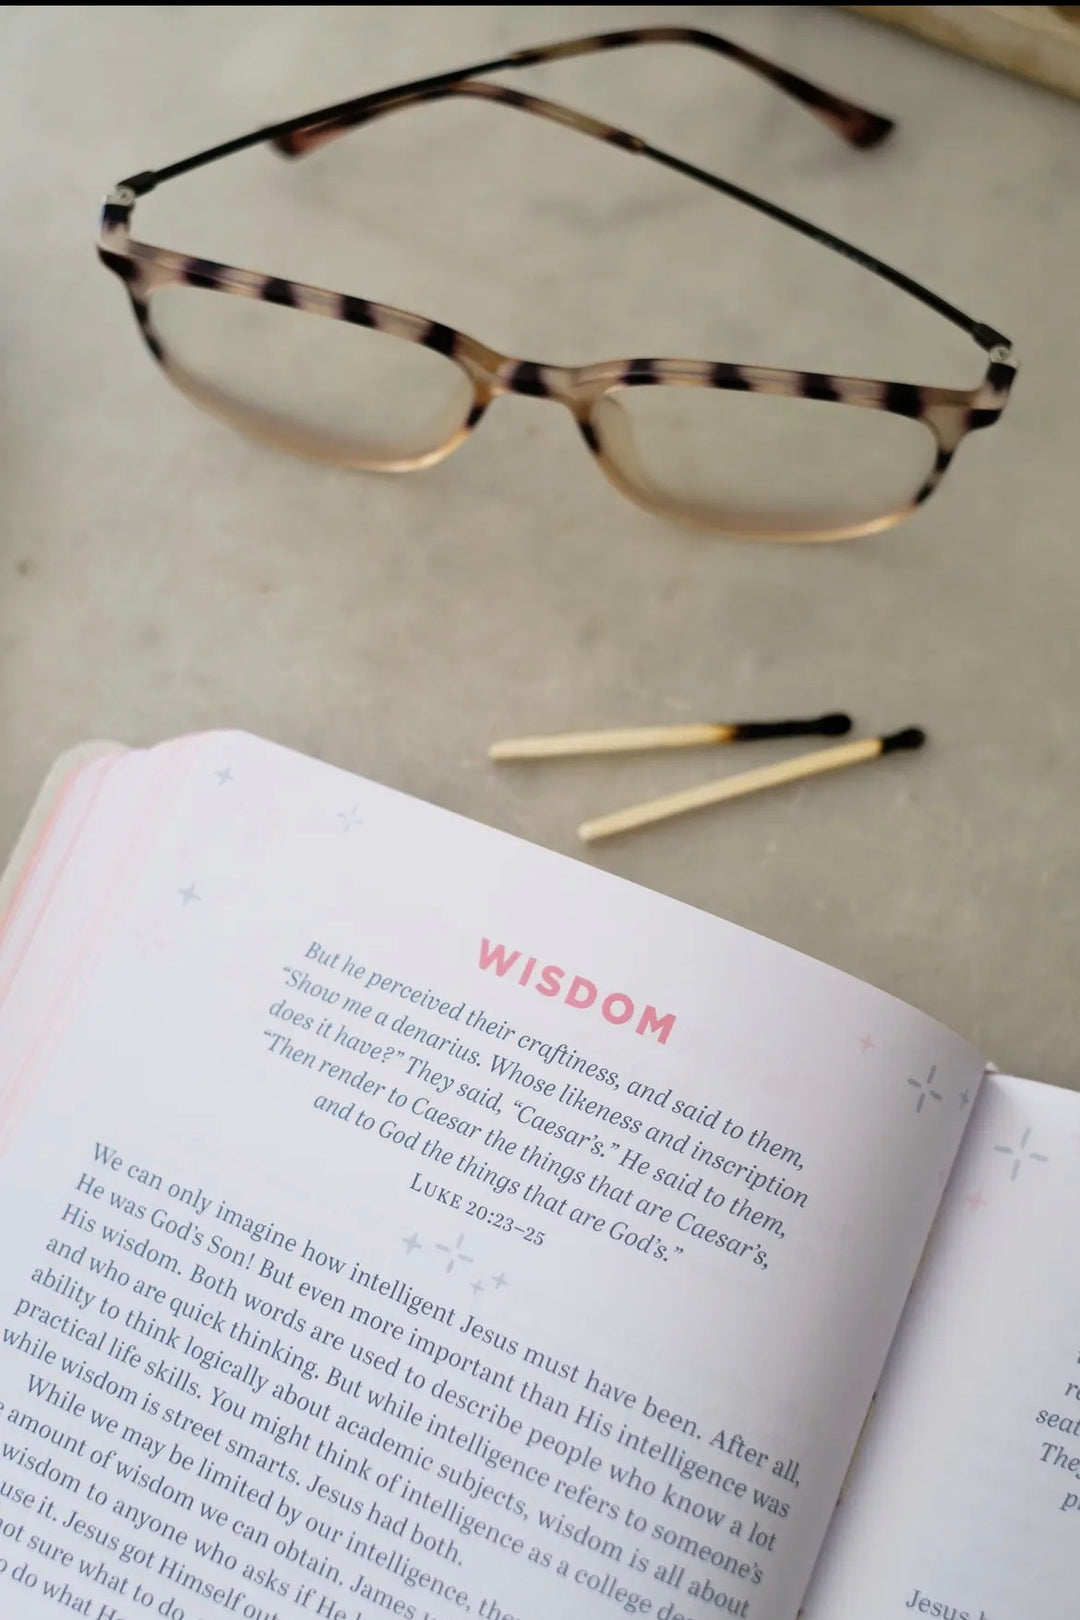 WISDOM
But he perceived their craftiness, and said to them,
“Show me a denarius. Whose likeness and inscription
does it have?” They said, “Caesar’s.” He said to them,
“Then render to Caesar the things that are Caesar’s,
and to God the things that are God’s.”
LUKE 20:23–25
We can only imagine how intelligent Jesus must have been. After all,
He was God’s Son! But even more important than His intelligence was
His wisdom. Both words are used to describe people who know a lot
and who are quick thinking. But while intelligence refers to someone’s
ability to think logically about academic subjects, wisdom is all about
practical life skills. You might think of intelligence as a college
while wisdom is street smarts. Jesus had both.
While we may be limited by our intelligence,
amount of wisdom we can obtain. James
wisdom to anyone who asks if He
use it. Jesus got Himself out
not sure what to do
do what
seat
Jesus